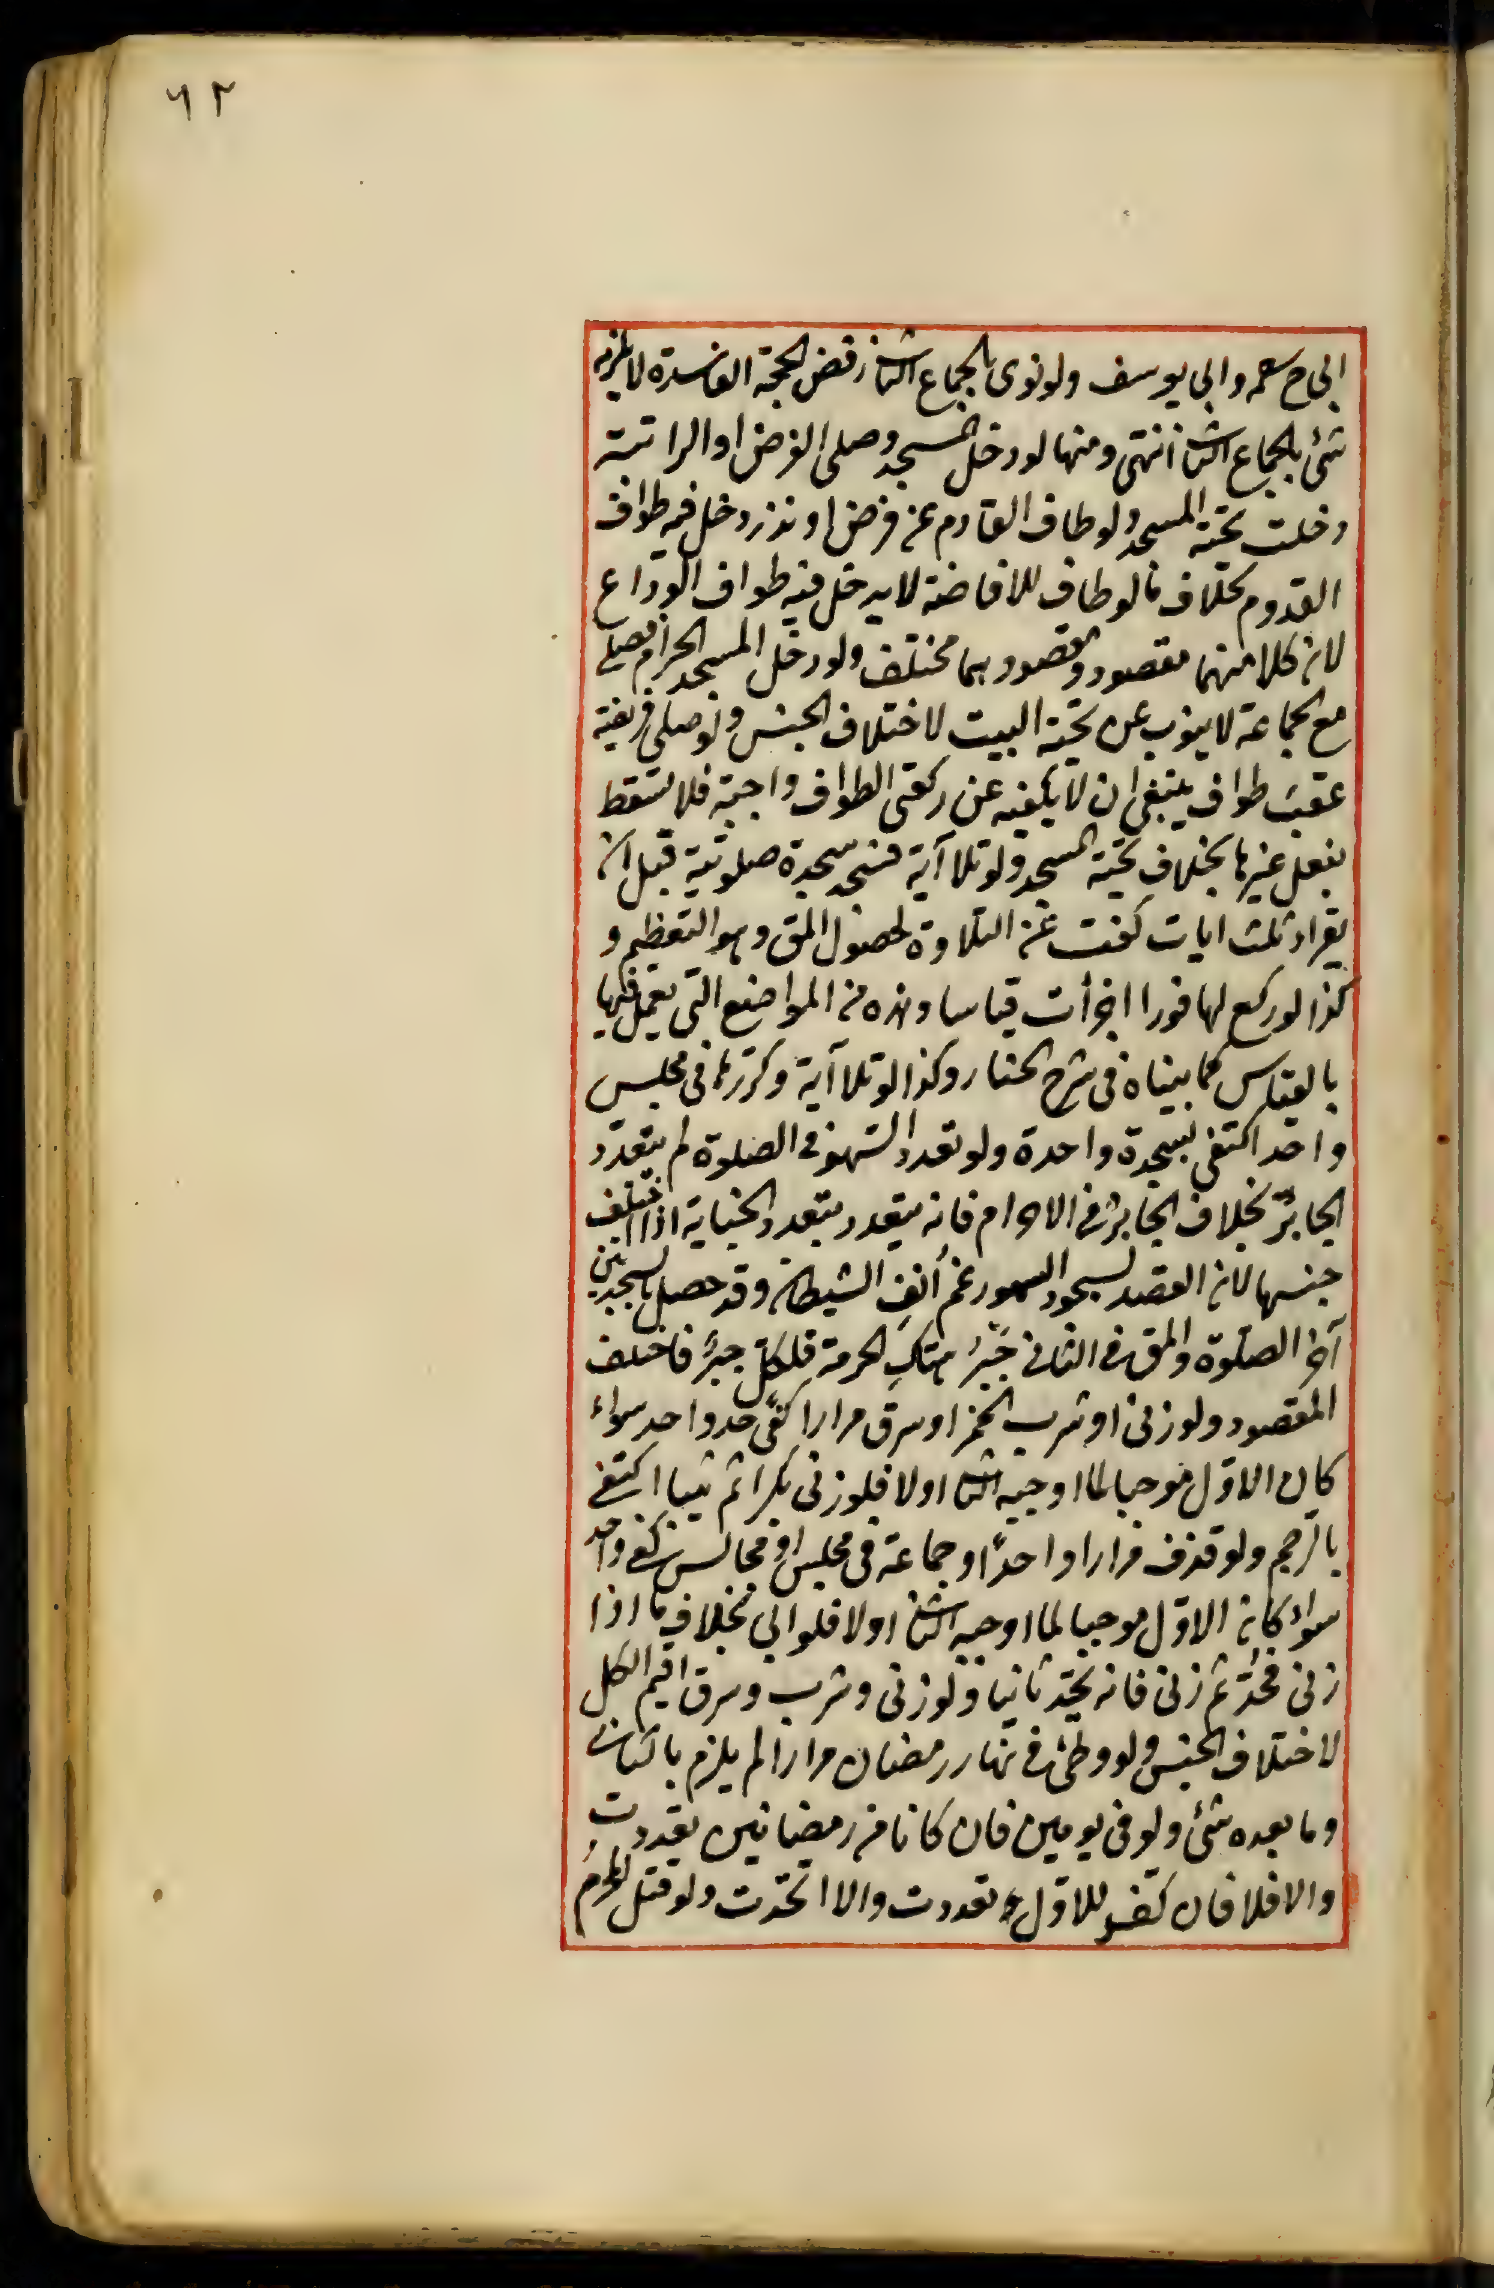 ٦٢
ابى ح رحمه وابى يوسف ولو نوى بالجماع الثانى رفض الحجة الفاسدة لا يلزمه
شئ بالجماع الثانى انتهى ومنها لو دخل المسجد وصلى الفرض او الراتبة
دخلت تحية المسجد ولو طاف القادم عن فرض او نذر دخل فيه طواف
القدوم بخلاف ما لو طاف للافاضة لا يدخل فيه طواف الوداع
لان كلا منهما مقصود ومقصودهما مختلف ولو دخل المسجد الحرام فصلى
مع الجماعة لا ينوب عن تحية البيت لاختلاف الجنس ولو صلى فريضة
عقيب طواف ينبغى ان لا يكفيه عن ركعتى الطواف واجبة فلا تسقط
بفعل غيرها بخلاف تحية المسجد ولو تلا آية فسجد سجدة صلوتية قبل ان
يقراء ثلث ايات كفت عن التلاوة لحصول المق وهو التعظيم و
كذا لو ركع لها فورا اجزأت قياسا وهذه من المواضع التى يعمل فيها
بالقياس كما بيناه فى شرح المنار وكذا لو تلا آية وكررها فى مجلس
واحد اكتفى بسجدة واحدة ولو تعدد السهو فى الصلوة لم يتعدد
الجابر بخلاف الجابر فى الاحرام فانه يتعدد بتعدد الجناية اذا اختلف
جنسها لان القصد بسجود السهو رغم أنف الشيطان وقد حصل بالسجدتين
آخر الصلوة والمق فى الثانى جبر هتك الحرمة فلكل جبر فاختلف
المقصود ولو زنى او شرب الخمر او سرق مرارا كفى حد واحد سواء
كان الاول موجبا لما اوجبه الثانى اولا فلو زنى بكرا ثم ثيبا اكتفى
بالرجم ولو قذف مرارا واحدًا او جماعة فى مجلس او مجالس كفى واحد
سواء كان الاول موجبا لما اوجبه الثانى اولا بخلاف ما اذا
زنى فحد ثم زنى فانه يحد ثانيا ولو زنى وشرب وسرق اقيم الكل
لاختلاف الجنس ولو وطئ فى نهار رمضان مرارا لم يلزم بالثانى
وما بعده شئ ولو فى يومين فان كانا من رمضانين تعددت
والا فلا فان كفر للاول تعددت والا اتحدت ولو قتل المحرم